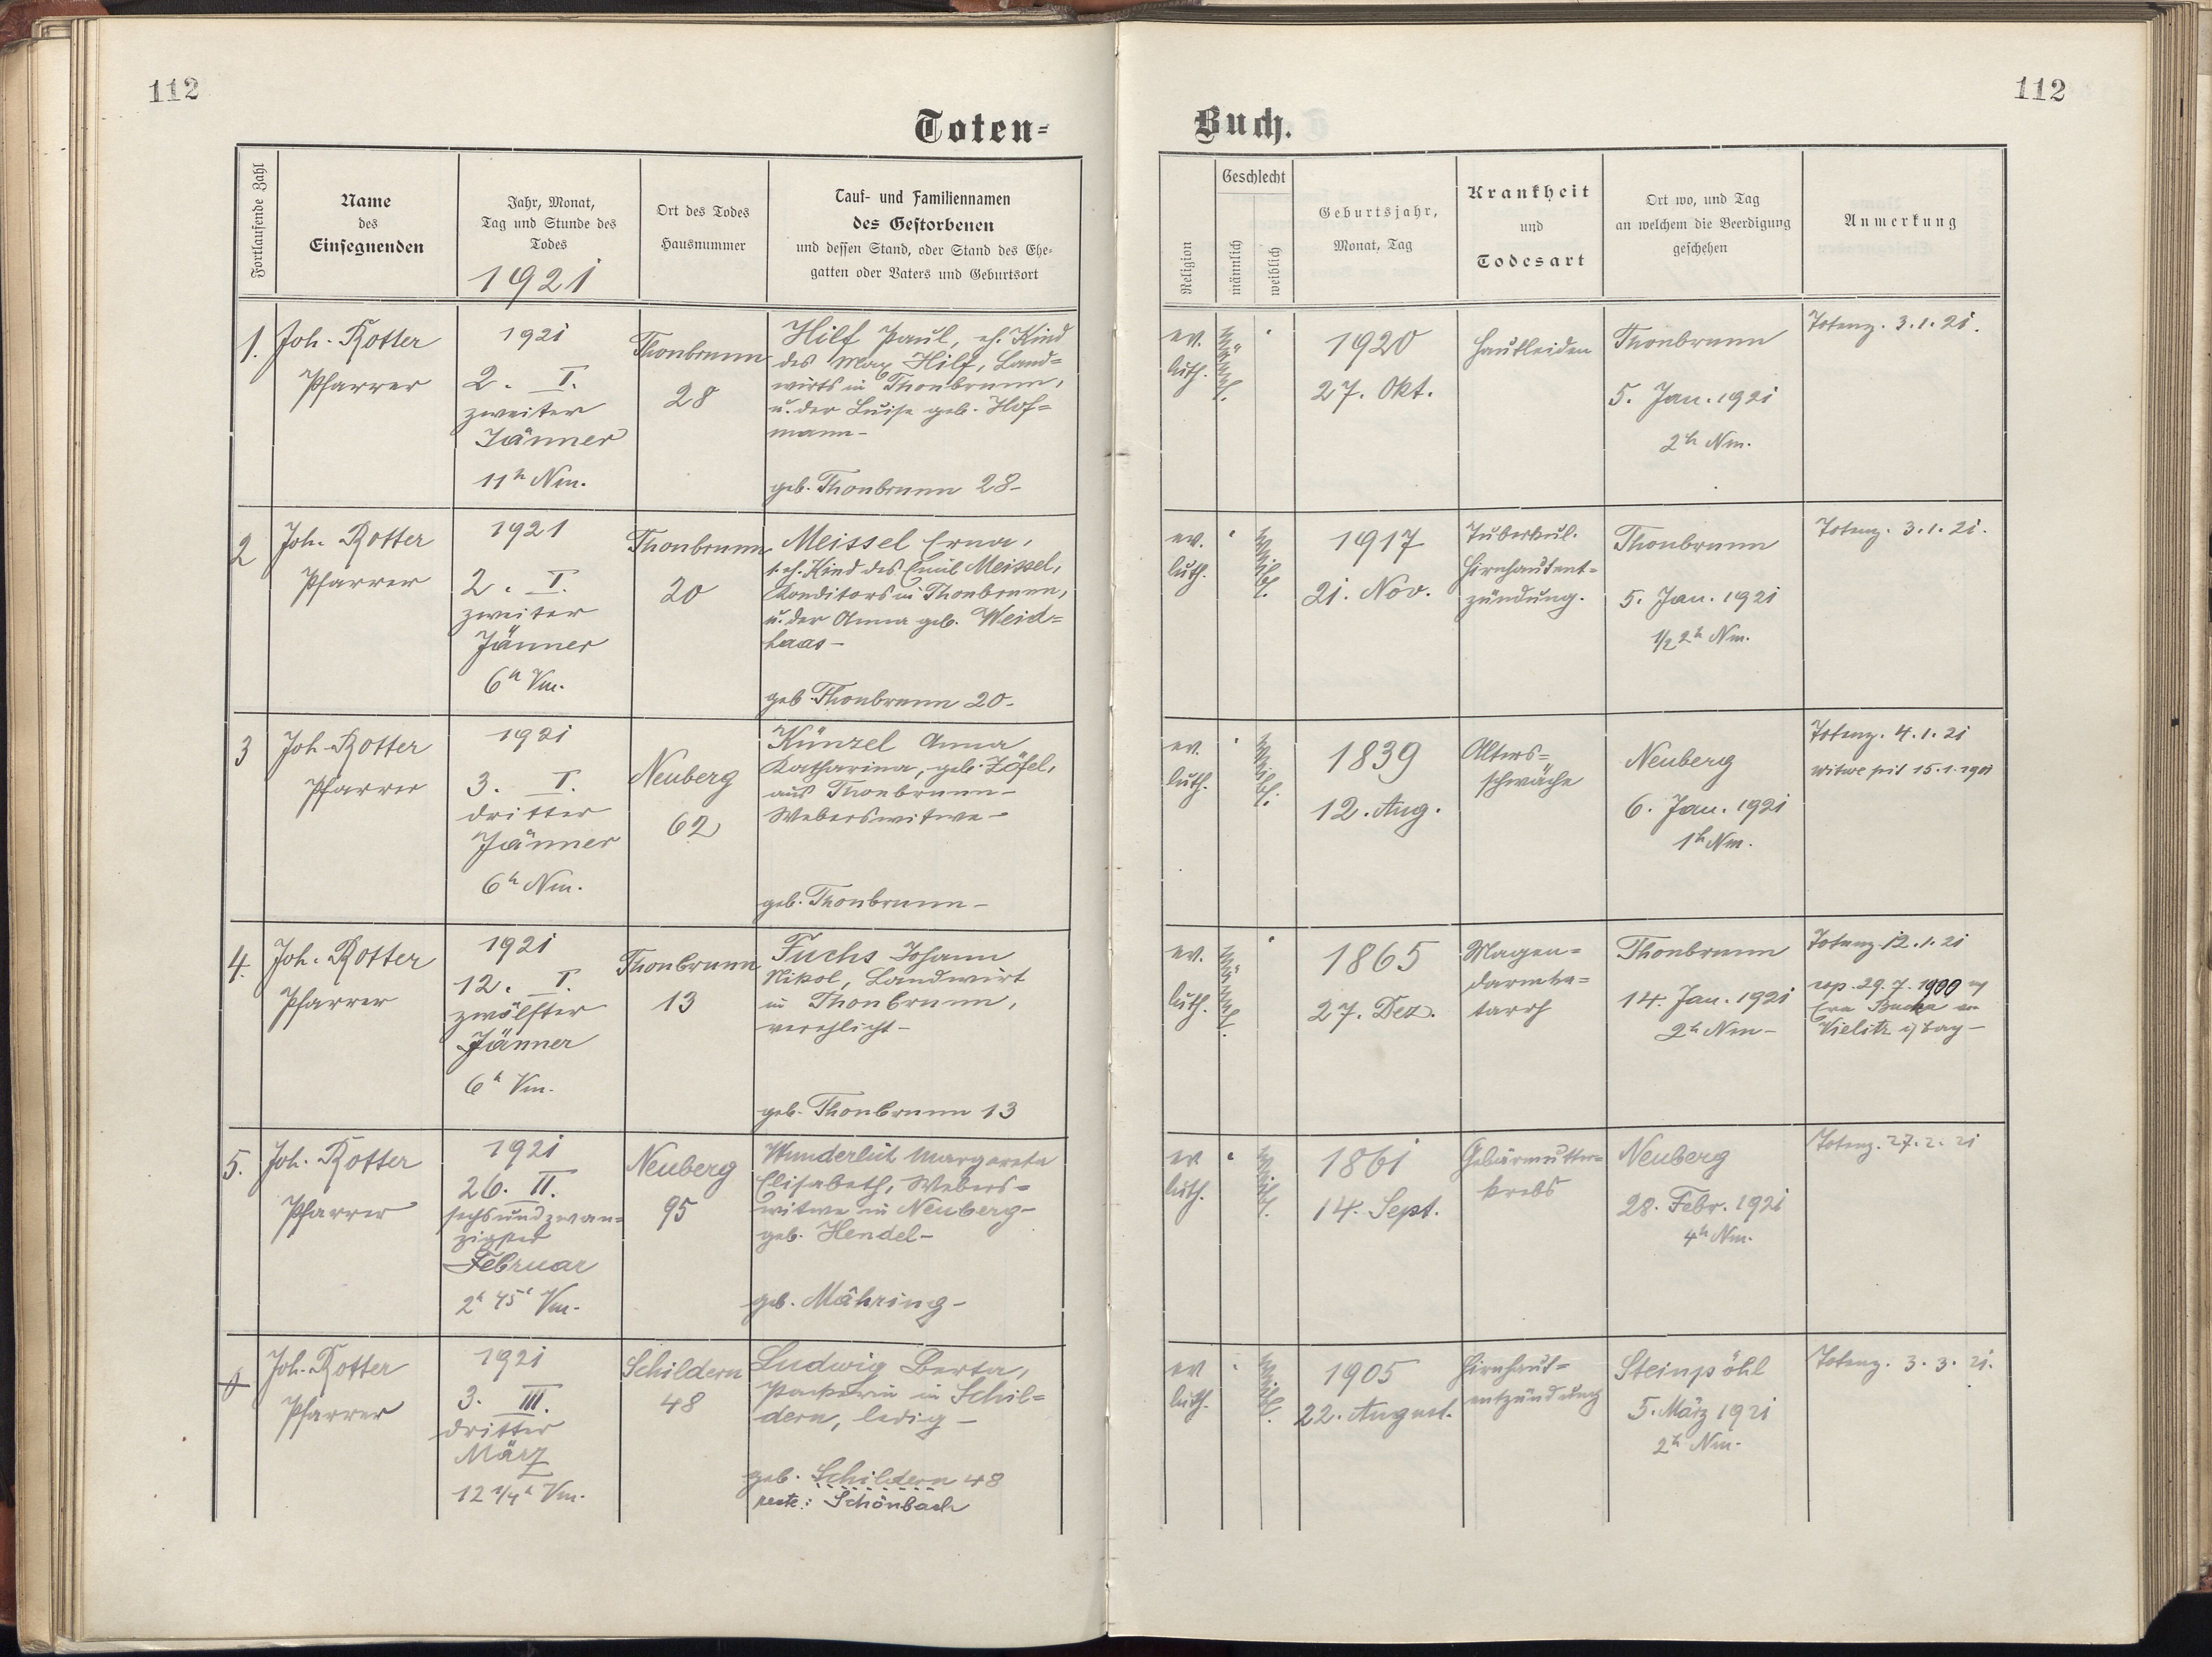 112
112
Toten=
Buch.
Fortlaufende Zahl
Name
des
Einsegnenden
Jahr, Monat,
Tag und Stunde des
Todes
1921
Ort des Todes
Hausnummer
Tauf- und Familiennamen
des Gestorbenen
und dessen Stand, oder Stand des Ehe-
gatten oder Vaters und Geburtsort
Religion
Geschlecht
männlich
weiblich
Geburtsjahr,
Monat, Tag
Krankheit
und
Todesart
Ort wo, und Tag
an welchem die Beerdigung
geschehen
Anmerkung
1.
Joh. Rotter
Pfarrer
1921
2. I.
zweiter
Jänner
11h Nm.
Thonbrunn
28
Hilf Paul, eh. Kind
des Max Hilf, Land=
wirts in Thonbrunn,
u. der Luise geb. Hof=
mann-
geb. Thonbrunn 28-
ev.
luth.
männl.
1920
27. Okt.
Hautleiden
Thonbrunn
5. Jan. 1921
2h Nm.
Totenz. 3.1.21.
2
Joh. Rotter
Pfarrer
1921
2. I.
zweiter
Jänner
6h Vm.
Thonbrunn
20
Meissel Erna,
eh. Kind des Emil Meissel,
Konditors in Thonbrunn,
u. der Anna geb. Weid=
haas-
geb Thonbrunn 20-
ev.
luth.
weibl.
1917
21. Nov.
Tuberkul.
Hirnhautent=
zündung.
Thonbrunn
5. Jan. 1921
1/2 2h Nm.
Totenz. 3.1.21.
3
Joh. Rotter
Pfarrer
1921
3. I.
dritter
Jänner
6h Nm.
Neuberg
62
Künzel Anna
Katharina, geb. Zöfel,
aus Thonbrunn-
Weberswitwe-
geb. Thonbrunn-
ev.
luth.
weibl.
1839
12. Aug.
Alters=
schwäche
Neuberg
6. Jan. 1921
1h Nm.
Totenz. 4.1.21
Witwe seit 15.1.1901
4.
Joh. Rotter
Pfarrer
1921
12. I.
zwölfter
Jänner
6h Vm.
Thonbrunn
13
Fuchs Johann
Nikol, Landwirt
in Thonbrunn,
verehlicht-
geb. Thonbrunn 13
ev.
luth.
männl.
1865
27. Dez.
Magen=
darmka=
tarrh
Thonbrunn
14. Jan. 1921
2h Nm-
Totenz. 12.1.21
cop. 29.7.1900
Vielitz i/ Bay-
5.
Joh. Rotter
Pfarrer
1921
26. II.
sechsundzwan=
zigster
Februar
2h 45' Vm.
Neuberg
95
Wunderlich Margareta
Elisabeth, Webers=
witwe in Neuberg-
geb. Hendel-
geb. Mähring-
ev
luth.
weibl.
1861
14. Sept.
Gebärmutter=
krebs
Neuberg
28. Febr. 1921
4h Nm.
Totenz. 27.2.21
6
Joh. Rotter
Pfarrer
1921
3. III.
dritter
März
12 1/4h Vm.
Schildern
48
Ludwig Berta,
Packerin in Schil=
dern, ledig-
geb. Schildern 48
recte: Schönbach
ev
luth.
weibl.
1905
22. August.
Hirnhaut=
entzündung
Steinpöhl
5. März 1921
2h Nm.
Totenz. 3.3.21.